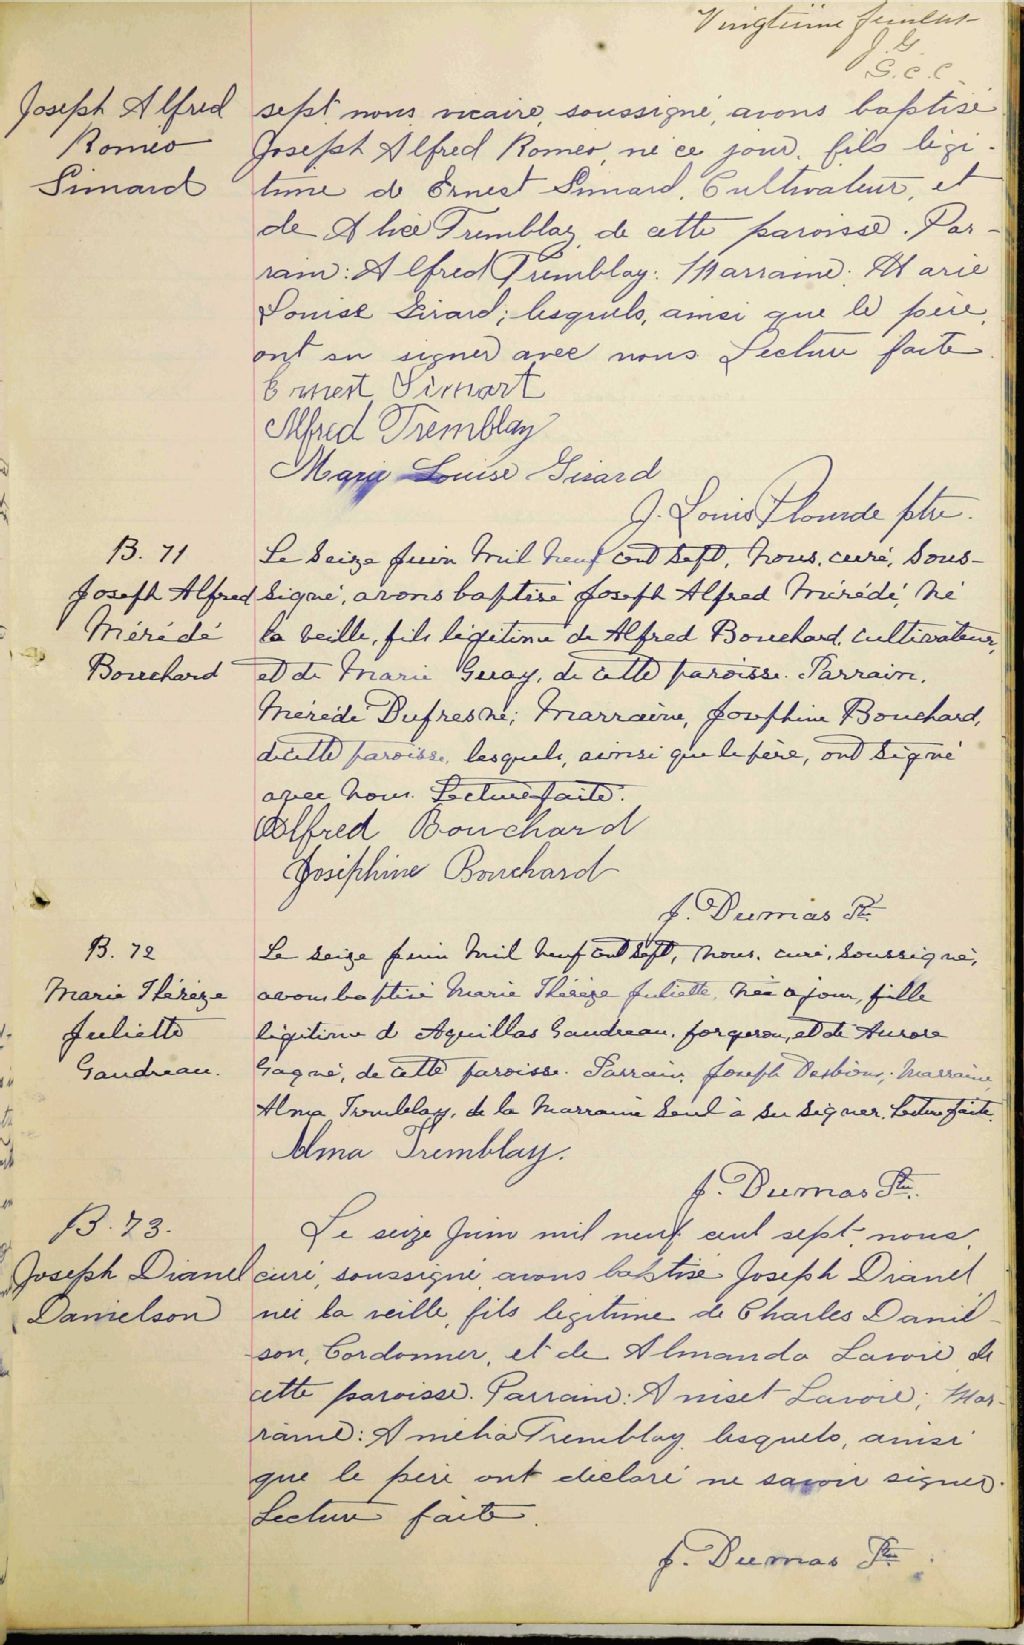 Vingtième feuillet
J. G.
G. C. C.
Joseph Alfred
Roméo
Simard
sept, nous vicaire, soussigné, avons baptisé
Joseph Alfred Roméo, né ce jour, fils légi-
time de Ernest Simard, Cultivateur, et
de Alice Tremblay, de cette paroisse. Par-
rain: Alfred Tremblay: Marraine: Marie
Louise Girard; lesquels, ainsi que le père,
ont su signer avec nous. Lecture faite.
Ernest Simart
Alfred Tremblay
Marie Louise Girard
J. Louis Plourde ptre.
B. 71
Joseph Alfred
Mérédé
Bouchard
Le seize Juin mil neuf cent sept, nous, curé, sous-
signé, avons baptisé Joseph Alfred Mérédé, né
la veille, fils légitime de Alfred Bouchard, cultivateur,
et de Marie Guay, de cette paroisse. Parrain,
Mérédé Dufresne; Marraine, Joséphine Bouchard,
de cette paroisse, lesquels, ainsi que le père, ont signé
avec nous. Lecture faite.
Alfred Bouchard
Joséphine Bouchard
J. Dumas Ptre.
B. 72
Marie Thérèze
Juliette
Gaudreau.
Le seize juin mil neuf cent sept, nous, curé, soussigné,
avons baptisé Marie Thérèze Juliette, née ce jour, fille
légitime de Aquillas Gaudreau, forgeron, et de Aurore
Gagné, de cette paroisse. Parrain, Joseph Desbiens; Marraine,
Alma Tremblay, de la Marraine seul à su signer. Lecture faite.
Alma Tremblay.
J. Dumas Ptre.
B. 73.
Joseph Dianel
Danielson
Le seize Juin mil neuf cent sept, nous,
curé, soussigné, avons baptisé Joseph Dianel
né la veille, fils légitime de Charles Daniel-
son, Cordonner, et de Almanda Lavoie, de
cette paroisse. Parrain: Aniset Lavoie; Mar-
raine: Amélia Tremblay, lesquels, ainsi
que le père ont déclaré ne savoir signer.
Lecture faite.
J. Dumas Ptre.